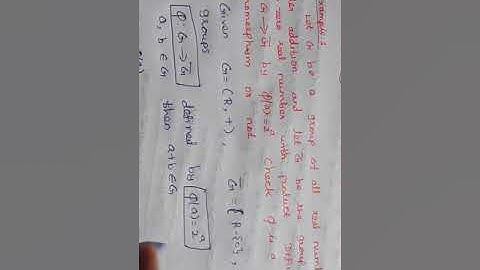 Example:-1
Let G be a group of all real num
der addition and let G̅ be the group
zero real number with product
G → G̅ by φ(a)=2^a check φ is a
homomorphism or not
Given G=(R,+), G̅ = {R-{0},
groups
φ: G → G̅ defined by φ(a)=2^a
a, b ∈ G then a+b ∈ G